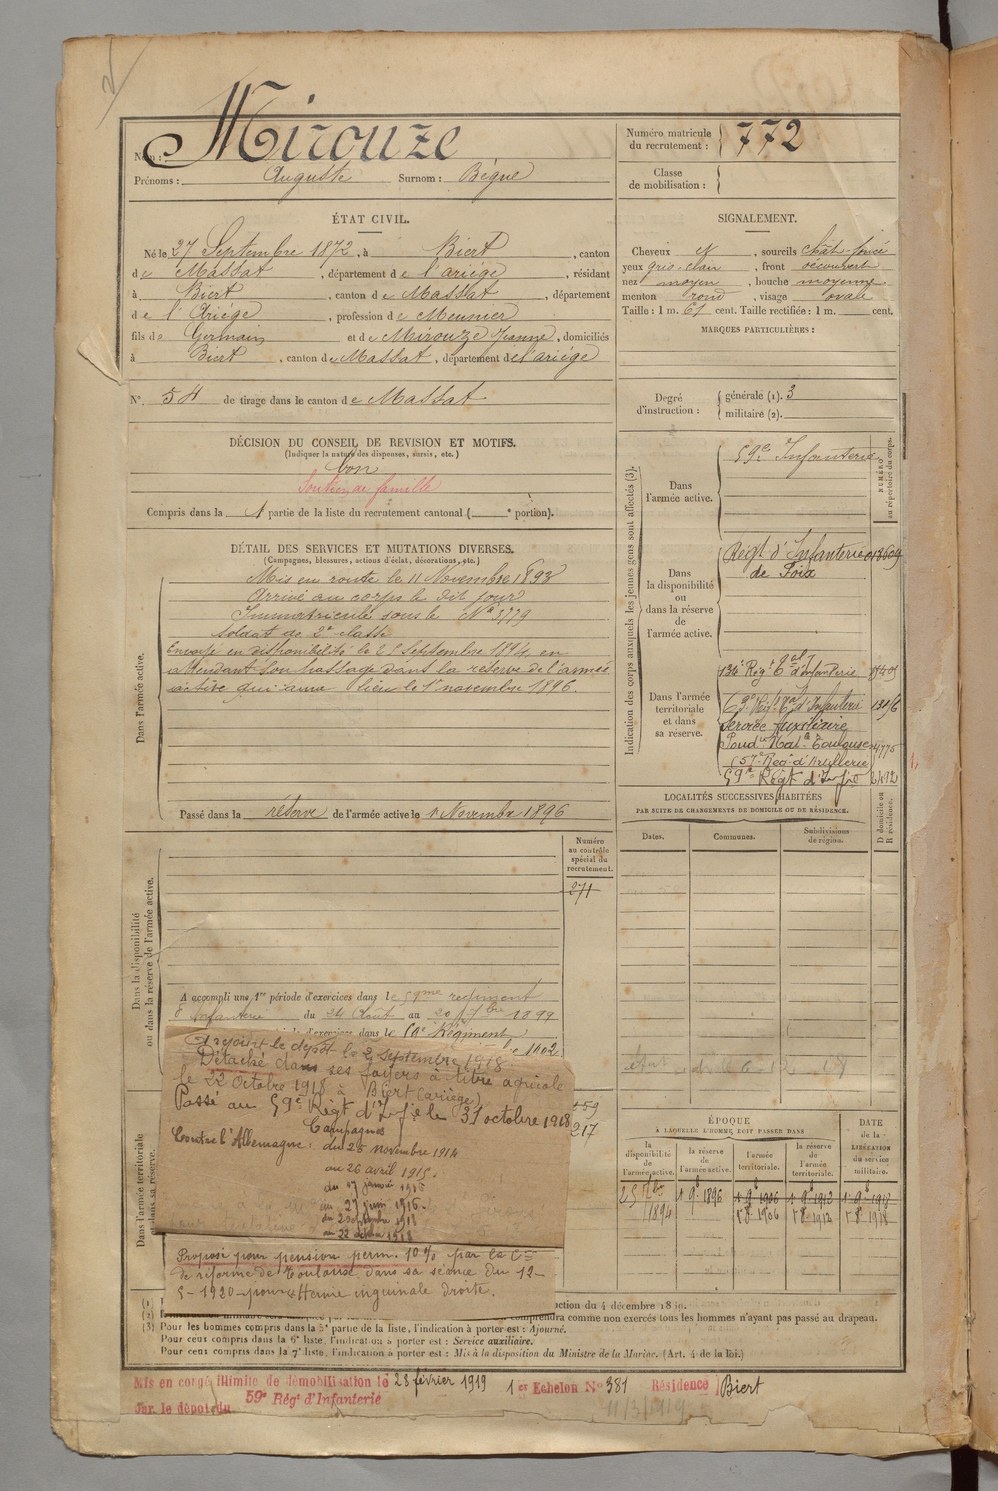 Nom : Mirouze
Prénoms : Auguste Surnom : Bègue
Numéro matricule du recrutement : 772
Classe de mobilisation :
ÉTAT CIVIL.
Né le 27 Septembre 1872, à Biert, canton
de Massat, département de l'ariége, résidant
à Biert, canton de Massat, département
de l'Ariége, profession de Meunier
fils de Germain et de Mirouze Jeanne, domiciliés
à Biert, canton de Massat, département de l'ariége
N° 54 de tirage dans le canton de Massat
SIGNALEMENT.
Cheveux, sourcils chât-foncé
yeux gris-clair, front découvert
nez moyen, bouche moyenne
menton rond, visage ovale
Taille : 1 m. 61 cent. Taille rectifiée : 1 m. cent.
MARQUES PARTICULIÈRES :
Degré d'instruction : générale (1). 3
militaire (2).
DÉCISION DU CONSEIL DE REVISION ET MOTIFS.
(Indiquer la nature des dispenses, sursis, etc.)
bon
Soutien de famille
Compris dans la 1 partie de la liste du recrutement cantonal ( e portion).
DÉTAIL DES SERVICES ET MUTATIONS DIVERSES.
(Campagnes, blessures, actions d'éclat, décorations, etc.)
Dans l'armée active.
Mis en route le 11 Novembre 1893
Arrivé au corps le dit jour
Immatriculé sous le N° 3779
Soldat de 2e classe
Envoyé en disponibilité le 25 Septembre 1894, en
attendant son passage dans la réserve de l'armée
active qui aura lieu le 1er novembre 1896.
Passé dans la réserve de l'armée active le 1 Novembre 1896
Indication des corps auxquels les jeunes gens sont affectés (3).
NUMÉRO au répertoire du corps.
Dans l'armée active.
59e Infanterie
Dans la disponibilité ou dans la réserve de l'armée active.
Régt d'Infanterie 018609
de Foix
Dans l'armée territoriale et dans sa réserve.
134e Régt Tal d'Infanterie
Service Auxiliaire
Poudrie Nale Toulouse 4775
57e Reg d'Artillerie
59e Régt d'Infie 2412
LOCALITÉS SUCCESSIVES HABITÉES
PAR SUITE DE CHANGEMENTS DE DOMICILE OU DE RÉSIDENCE.
D domicile ou R résidence.
Dates. Communes. Subdivisions de région.
Dans la disponibilité ou dans la réserve de l'armée active.
Numéro au contrôle spécial du recrutement.
271
A accompli une 1re période d'exercices dans le 59me regiment
d'Infanterie du 24 Août au 20 7bre 1899
période d'exercices dans le 59e Régiment
1902
Dans l'armée territoriale et dans sa réserve.
A rejoint le dépôt le 2 Septembre 1918.
Détaché dans ses foyers à titre agricole
le 22 octobre 1918 à Biert (ariège)
Passé au 59e Régt d'Infie le 31 octobre 1918
Campagnes
Contre l'Allemagne : du 25 novembre 1914
au 26 avril 1915.
du 17 janvier 1916
au 27 juin 1916.
du 2 Septembre 1918
au 22 octobre 1918
217
Proposé pour pension perm. 10% par la Con
de réforme de Toulouse dans sa séance du 12-
5-1920 pour Hernie inguinale droite.
ÉPOQUE
A LAQUELLE L'HOMME DOIT PASSER DANS
DATE de la LIBÉRATION du service militaire.
la disponibilité de l'armée active. la réserve de l'armée active. l'armée territoriale. la réserve de l'armée territoriale.
25 7bre 1894 1 9b 1896 1 9b 1906 1 9b 1912 1 9b 1918
1 8b 1906 1 8b 1912 1 8b 1918
(1)
ction du 4 décembre 1889.
(2)
comprendra comme non exercés tous les hommes n'ayant pas passé au drapeau.
(3) Pour les hommes compris dans la 5e partie de la liste, l'indication à porter est : Ajourné.
Pour ceux compris dans la 6e liste, l'indication à porter est : Service auxiliaire.
Pour ceux compris dans la 7e liste, l'indication à porter est : Mis à la disposition du Ministre de la Marine. (Art. 4 de la loi.)
Mis en congé illimité de démobilisation le 28 février 1919 1er Echelon N° 381 Résidence Biert
Par le dépôt du 59e Régt d'Infanterie
11/3/1919